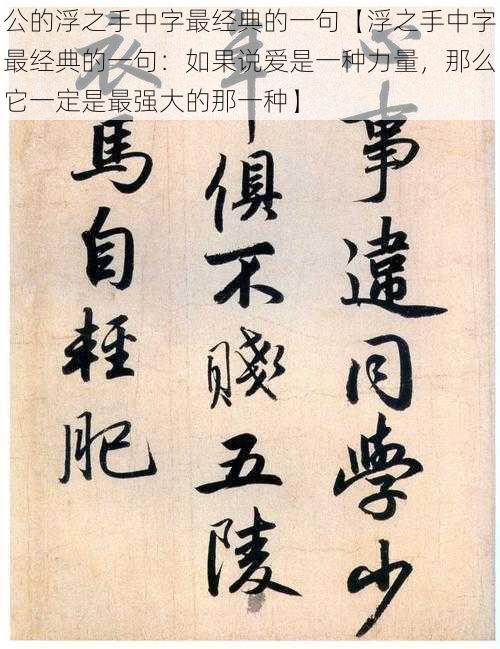 公的浮之手中字最经典的一句【浮之手中字
最经典的一句：如果说爱是一种力量，那么
它一定是最强大的那一种】
心事違同學少
年俱不賤五陵
衣馬自輕肥